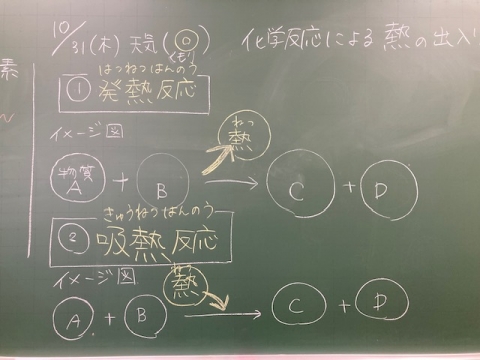 10/31(木) 天気(◎)
くもり
化学反応による熱の出入
素
はつねつはんのう
① 発熱反応
イメージ図
ねつ
熱
物質A + B → C + D
きゅうねつはんのう
② 吸熱反応
イメージ図
ねつ
熱
A + B → C + D